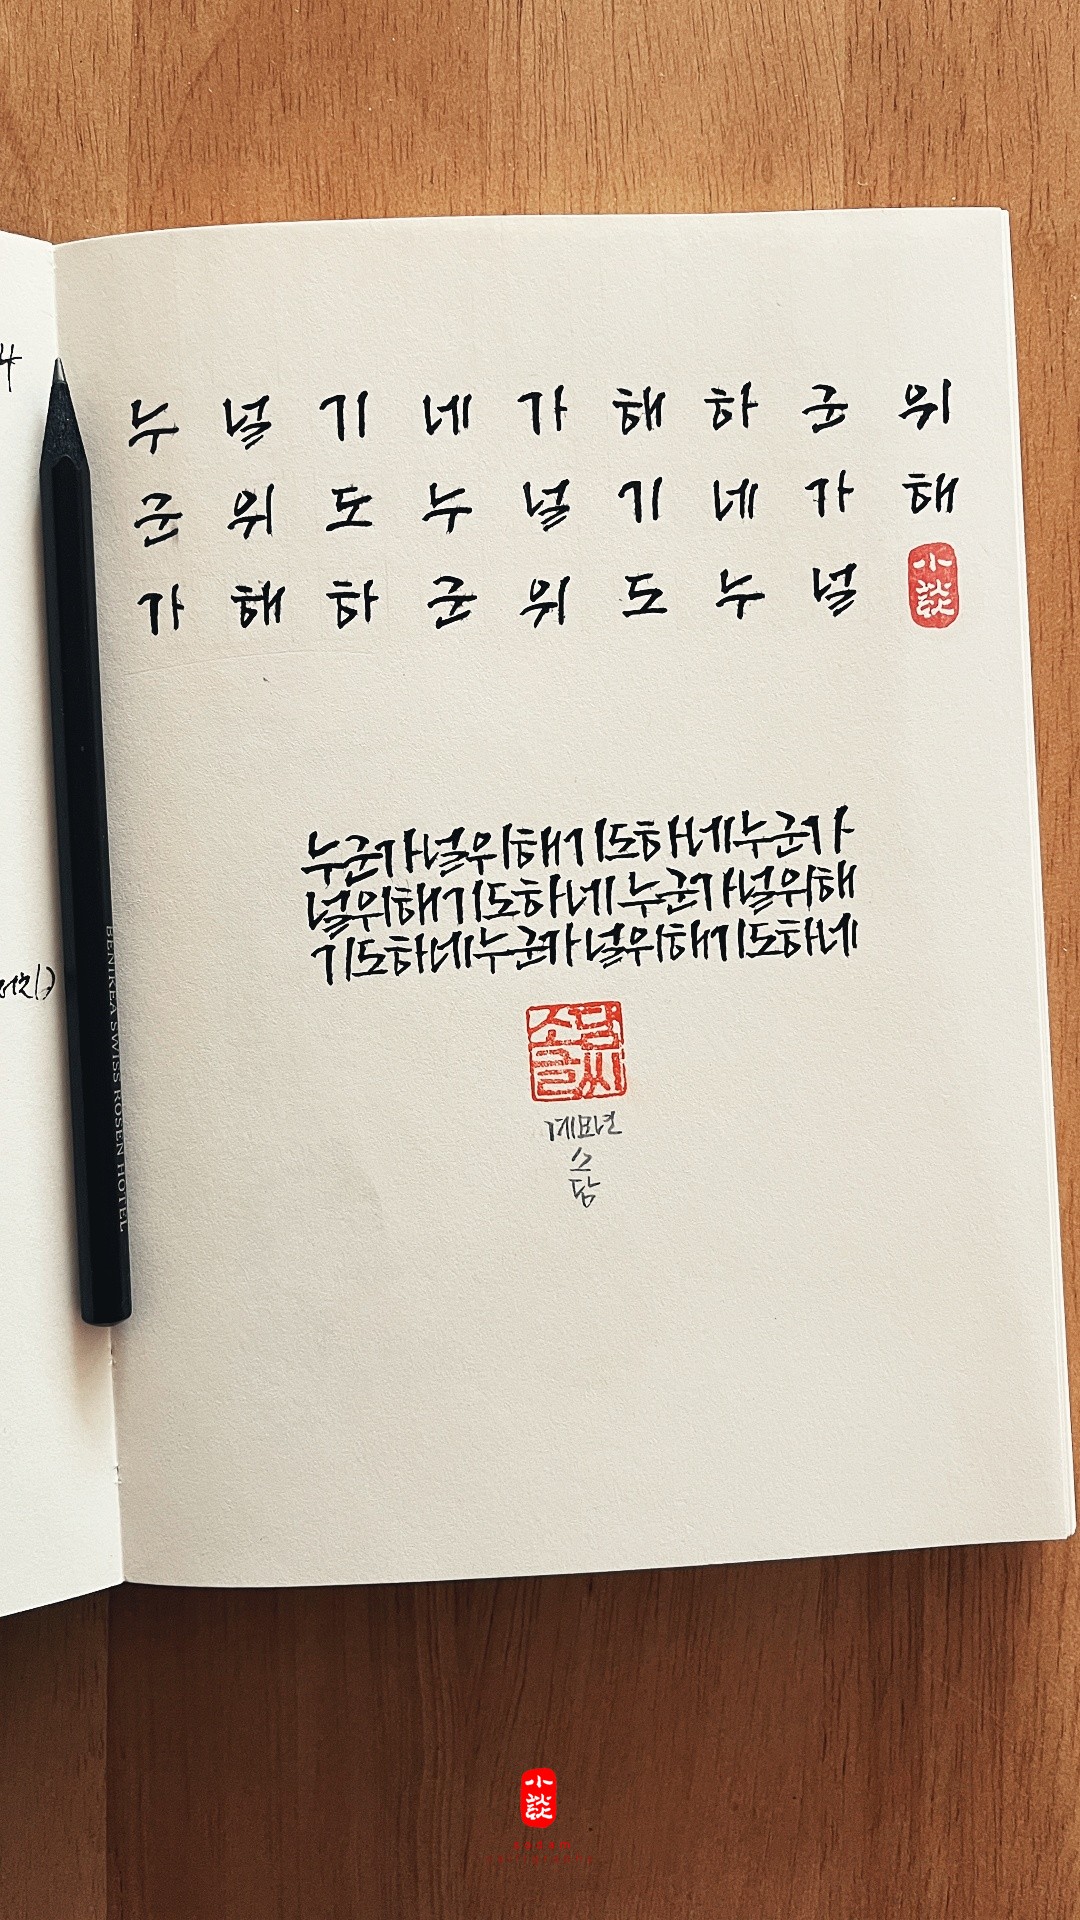 누 널 기 네 가 해 하 군 위
군 위 도 누 널 기 네 가 해
가 해 하 군 위 도 누 널
小談
누군가널위해기도하네누군가
널위해기도하네누군가널위해
기도하네누군가널위해기도하네
소담
글씨
계묘년
소
담
BENIKEA SWISS ROSEN HOTEL
小談